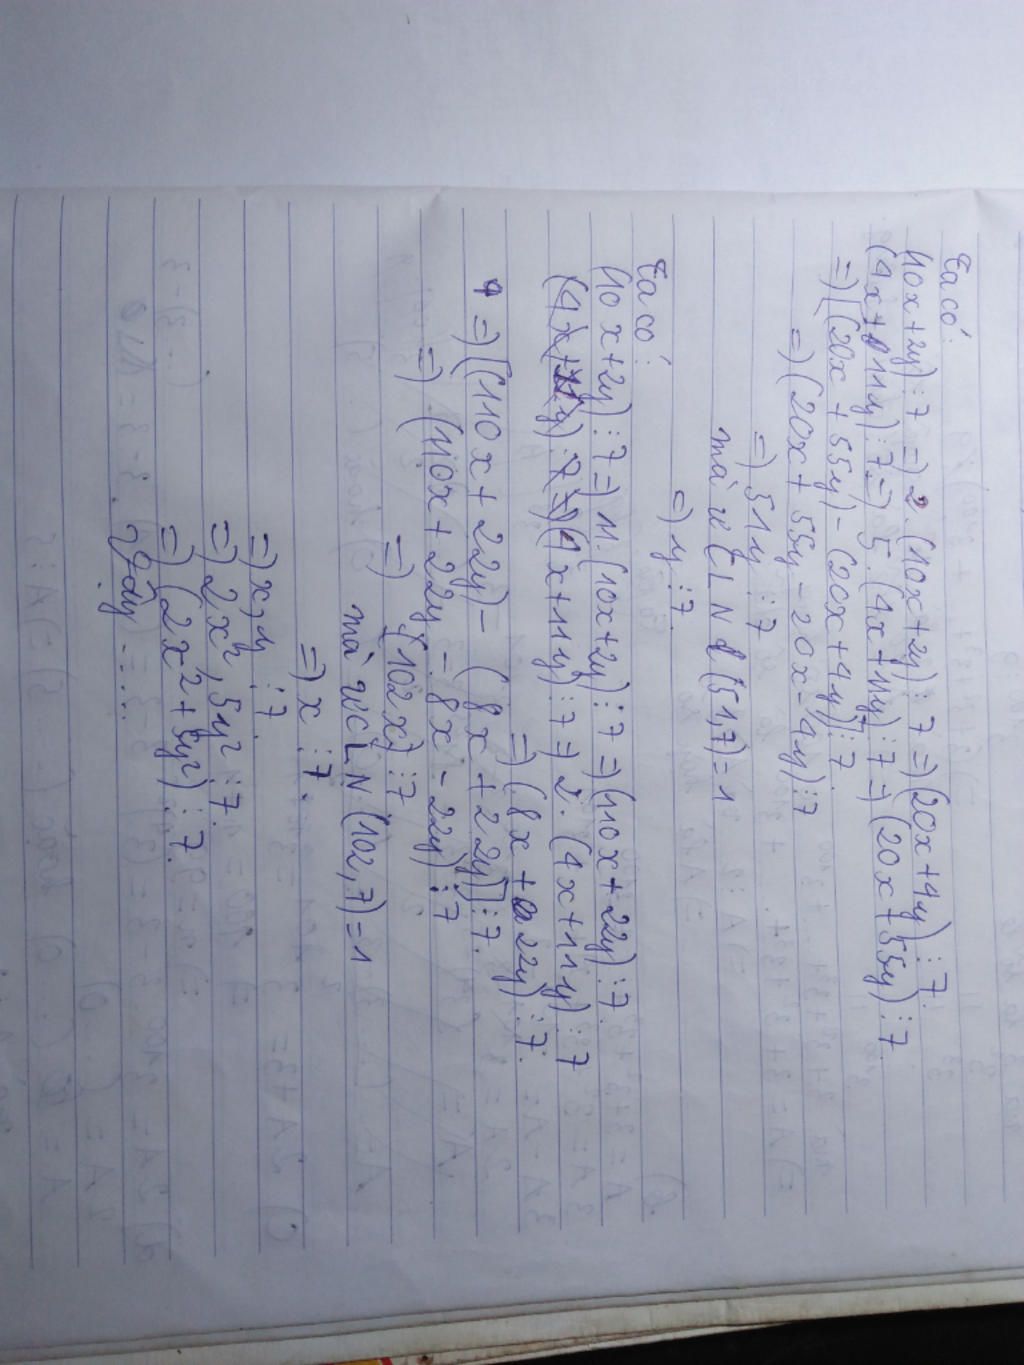 Ta có:
(10x+2y)⋮7 =) 2.(10x+2y)⋮7 =)(20x+4y)⋮7.
(4x+11y)⋮7.=) 5.(4x+11y)⋮7 =)(20x+55y)⋮7.
=)[(20x+55y)-(20x+4y)]⋮7.
=)(20x+55y-20x-4y)⋮7
=) 51y⋮7
mà ƯCLN (51,7)=1
=) y⋮7.
Ta có:
(10x+2y)⋮7=) 11.(10x+2y)⋮7 =)(110x+22y)⋮7.
(4x+11y)⋮7 =) 2.(4x+11y)⋮7
=)(8x+22y)⋮7.
=)[(110x+22y)-(8x+22y)]⋮7.
=) (110x+22y-8x-22y)⋮7
=) (102x)⋮7
mà ƯCLN (102,7)=1
=) x⋮7.
=) x,y⋮7.
=) 2x², 5y²⋮7.
=) (2x²+5y²)⋮7.
Vậy....